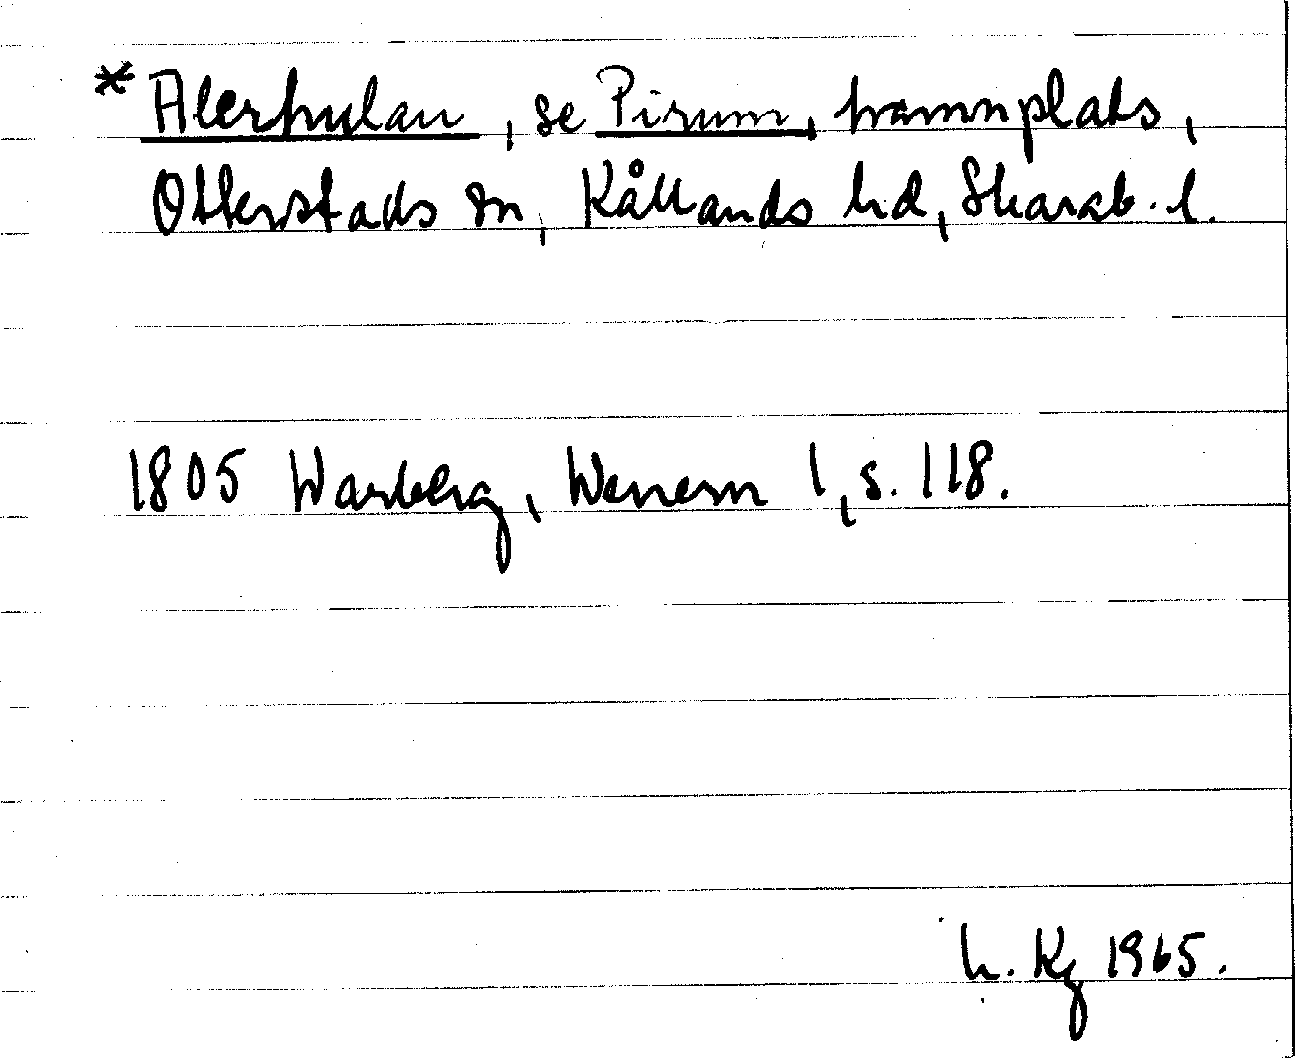 * Alerhulan, se Pirum, hamnplats,
Otterstads sn, Kållands hd, Skarab. l.
1805 Warberg, Wenern 1, s. 118.
h. Kg 1965.